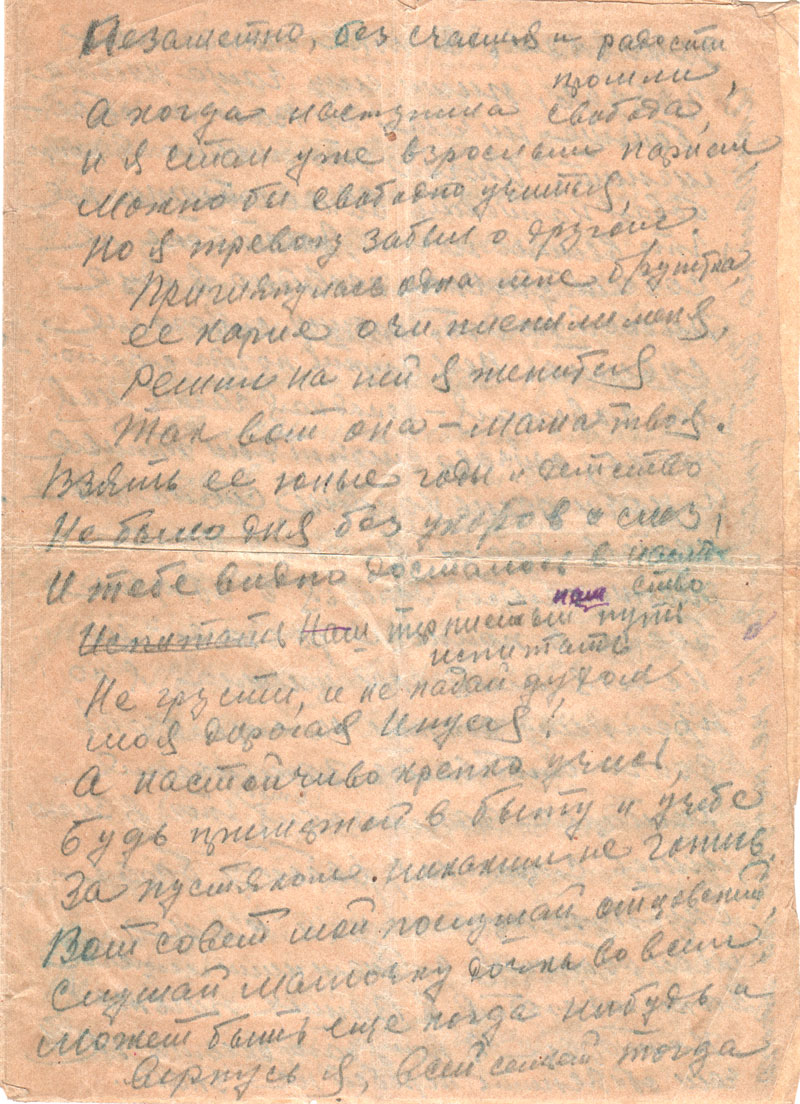 Незаметно, без счастья и радости
прошли,
А когда наступила свобода,
и я стал уже взрослым парнем,
Можно бы свободно учится,
Но я тревогу забыл о другом.
Приглянулась одна мне
ее карие очи пленили меня,
Решил на ней я женится
Так вот она – мама твоя.
Взять ее юные годы и детство
Не было дня без укоров и слез,
И тебе видно досталось в наслед
ство
наш
Испытать Наш тернистый путь
испытать
Не грусти, и не падай духом
моя дорогая Инуся!
А настойчиво крепко учись,
Будь прилежной в быту и учебе
За пустяком никаким не гонись.
Вот совет мой послушай отцовский,
Слушай мамочку дочка во всем,
Может быть еще когда нибудь и
вернусь я, всей семьей тогда